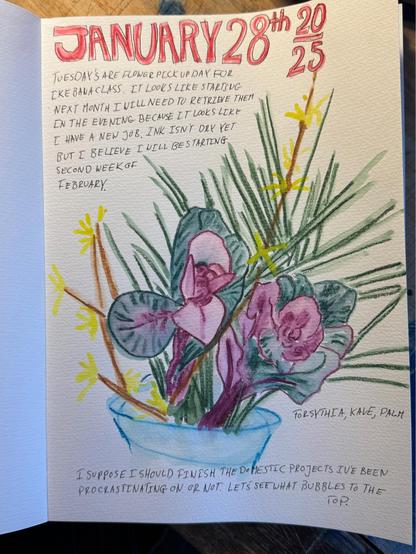 JANUARY 28th 20
25
TUESDAY'S ARE FLOWER PICK UP DAY FOR
IKEBANA CLASS. IT LOOKS LIKE STARTING
NEXT MONTH I WILL NEED TO RETRIEVE THEM
IN THE EVENING BECAUSE IT LOOKS LIKE
I HAVE A NEW JOB. INK ISN'T DRY YET
BUT I BELIEVE I WILL BE STARTING
SECOND WEEK OF
FEBRUARY.
FORSYTHIA, KALE, PALM
I SUPPOSE I SHOULD FINISH THE DOMESTIC PROJECTS IV'E BEEN
PROCRASTINATING ON OR NOT. LET'S SEE WHAT BUBBLES TO THE
TOP.